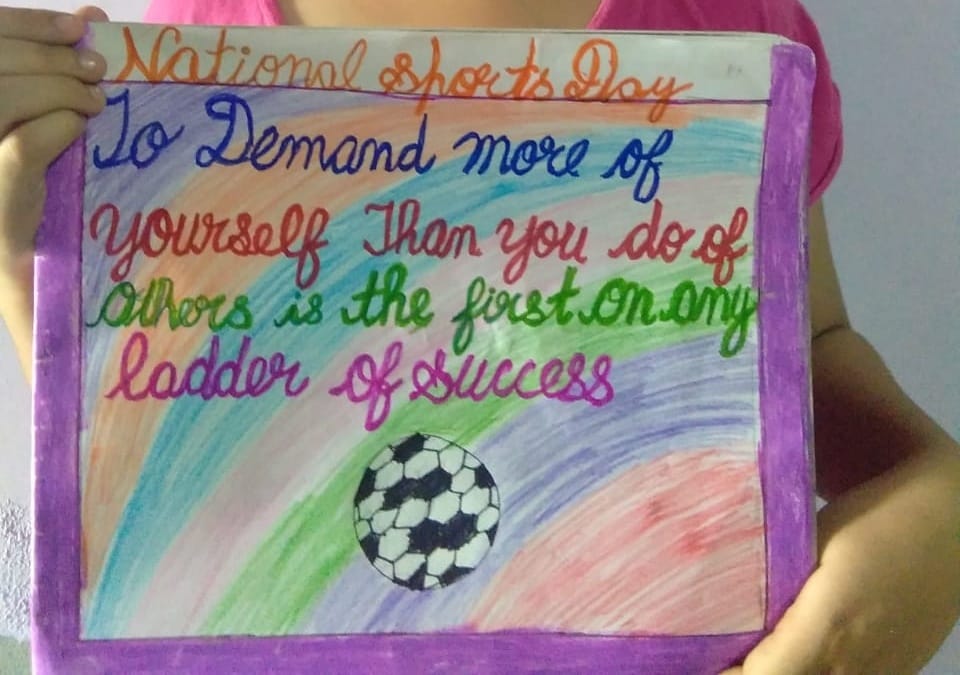 National sports Day
To Demand more of
yourself Than you do of
others is the first on any
ladder of success